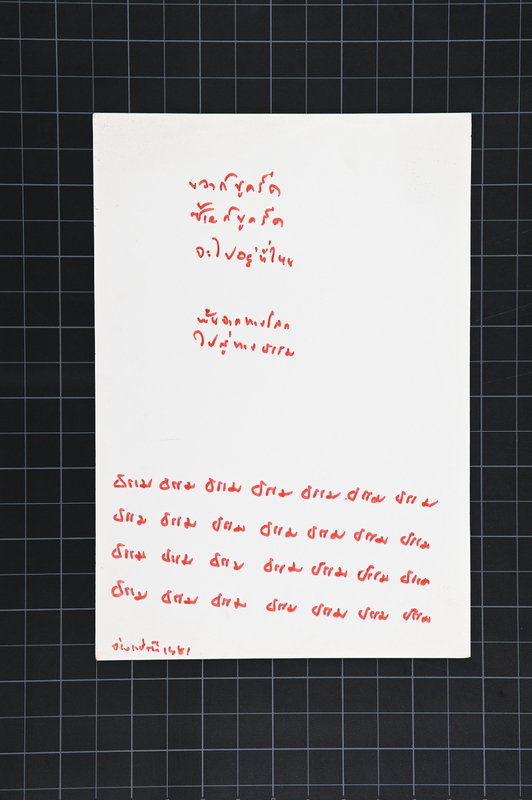 ขวาก็ขูดรีด
ซ้ายก็ขูดรีด
จะไปอยู่ที่ไหน
พ้นจากทางโลก
ไปสู่ทางธรรม
ธรรม ธรรม ธรรม ธรรม ธรรม ธรรม ธรรม
ธรรม ธรรม ธรรม ธรรม ธรรม ธรรม ธรรม
ธรรม ธรรม ธรรม ธรรม ธรรม ธรรม ธรรม
ธรรม ธรรม ธรรม ธรรม ธรรม ธรรม ธรรม